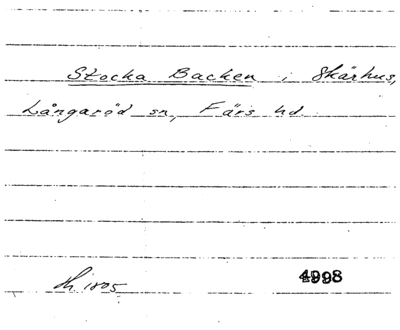 Stocka Backen i Skärhus,
Långaröd sn, Färs hd.
h. 1805
4998